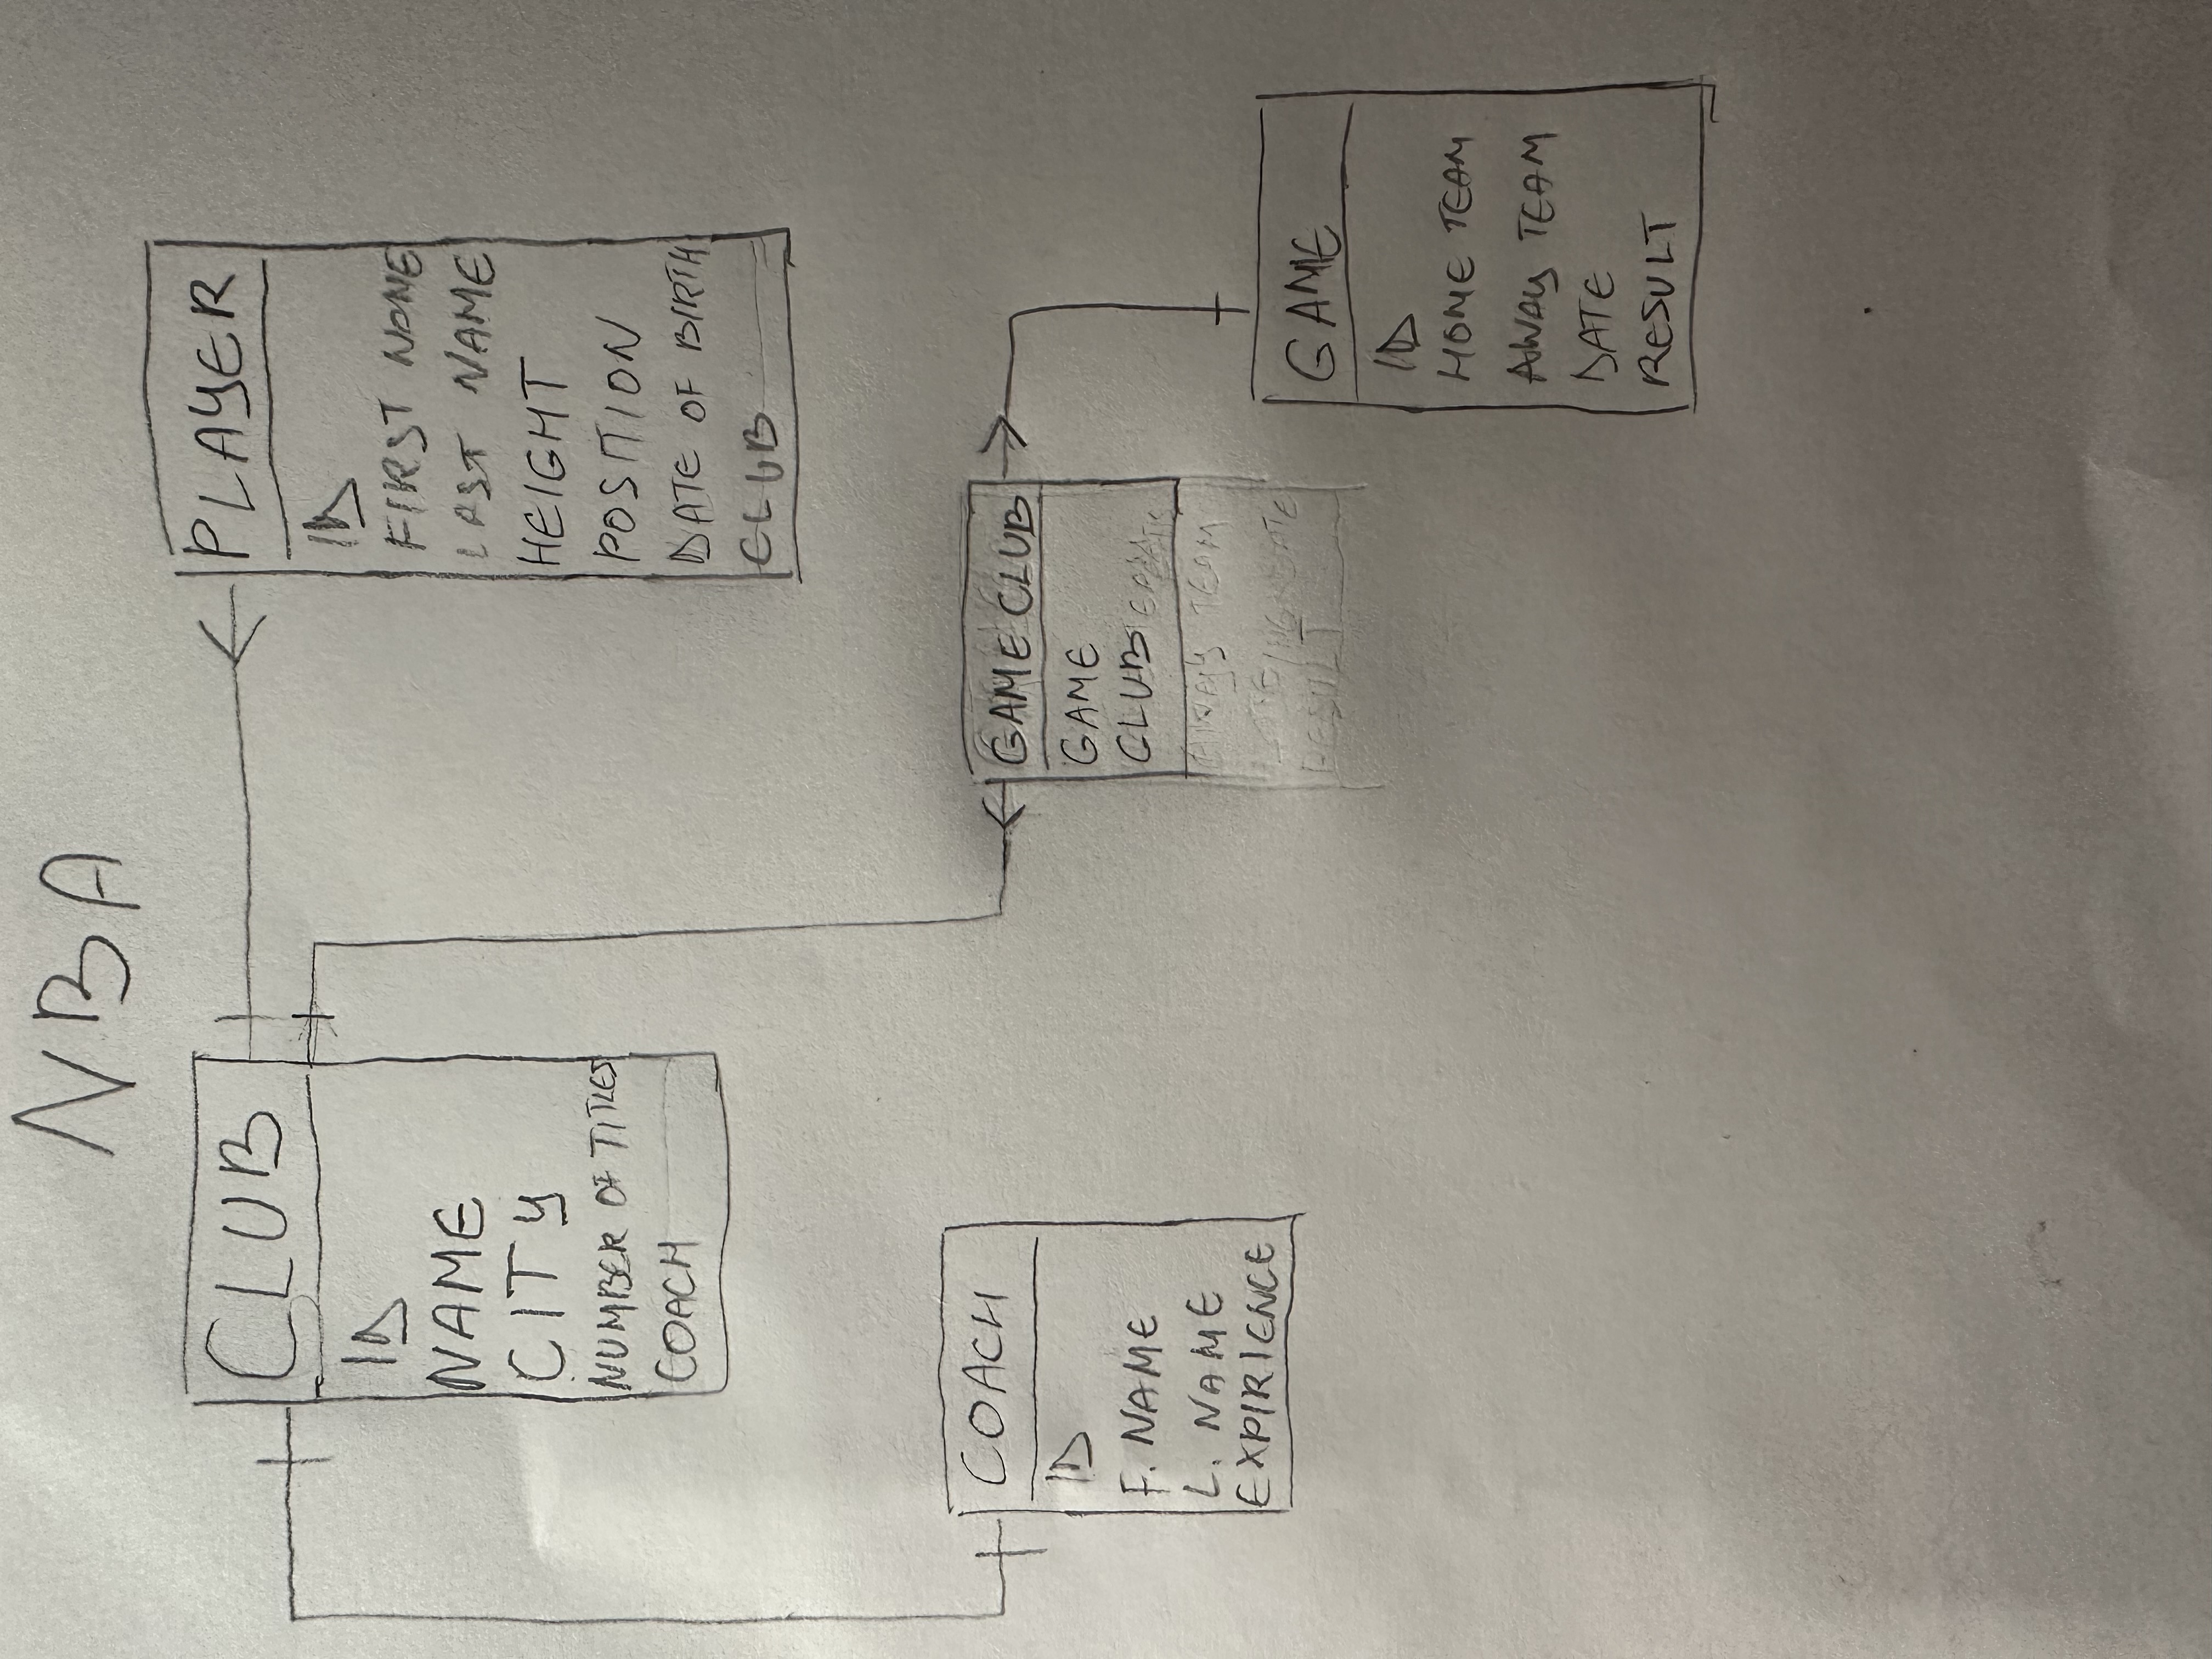 NBA
CLUB
ID
NAME
CITY
NUMBER OF TITLES
COACH
PLAYER
ID
FIRST NONE
LAST NAME
HEIGHT
POSITION
DATE OF BIRTH
CLUB
COACH
ID
F. NAME
L. NAME
EXPIRIENCE
GAME CLUB
GAME
CLUB
AWAY TEAM
RESULT
GAME
ID
HOME TEAM
AWAY TEAM
DATE
RESULT